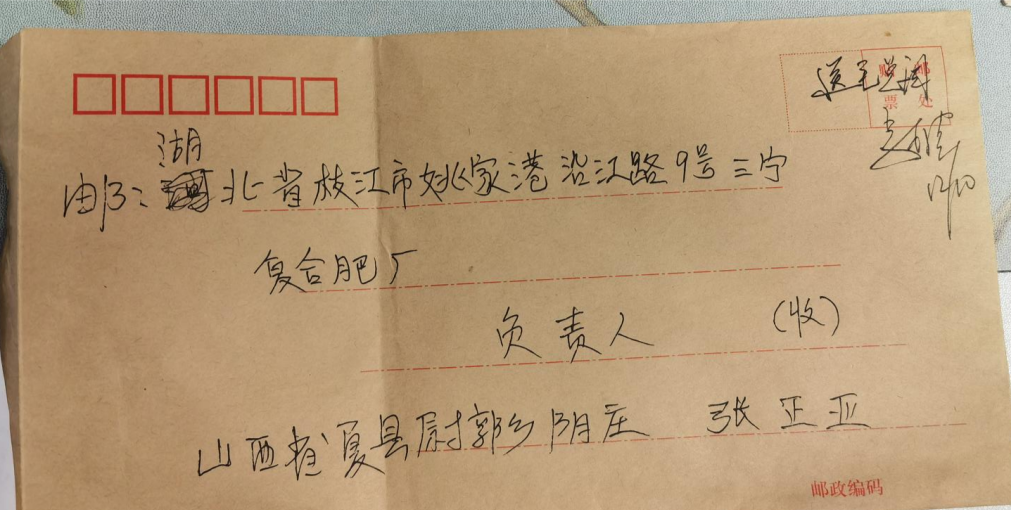 邮票处
送毛总阅
12/10
湖
邮：北省枝江市姚家港沿江路9号三宁
复合肥厂
负责人 (收)
山西省夏县尉郭乡阴庄 张正亚
邮政编码